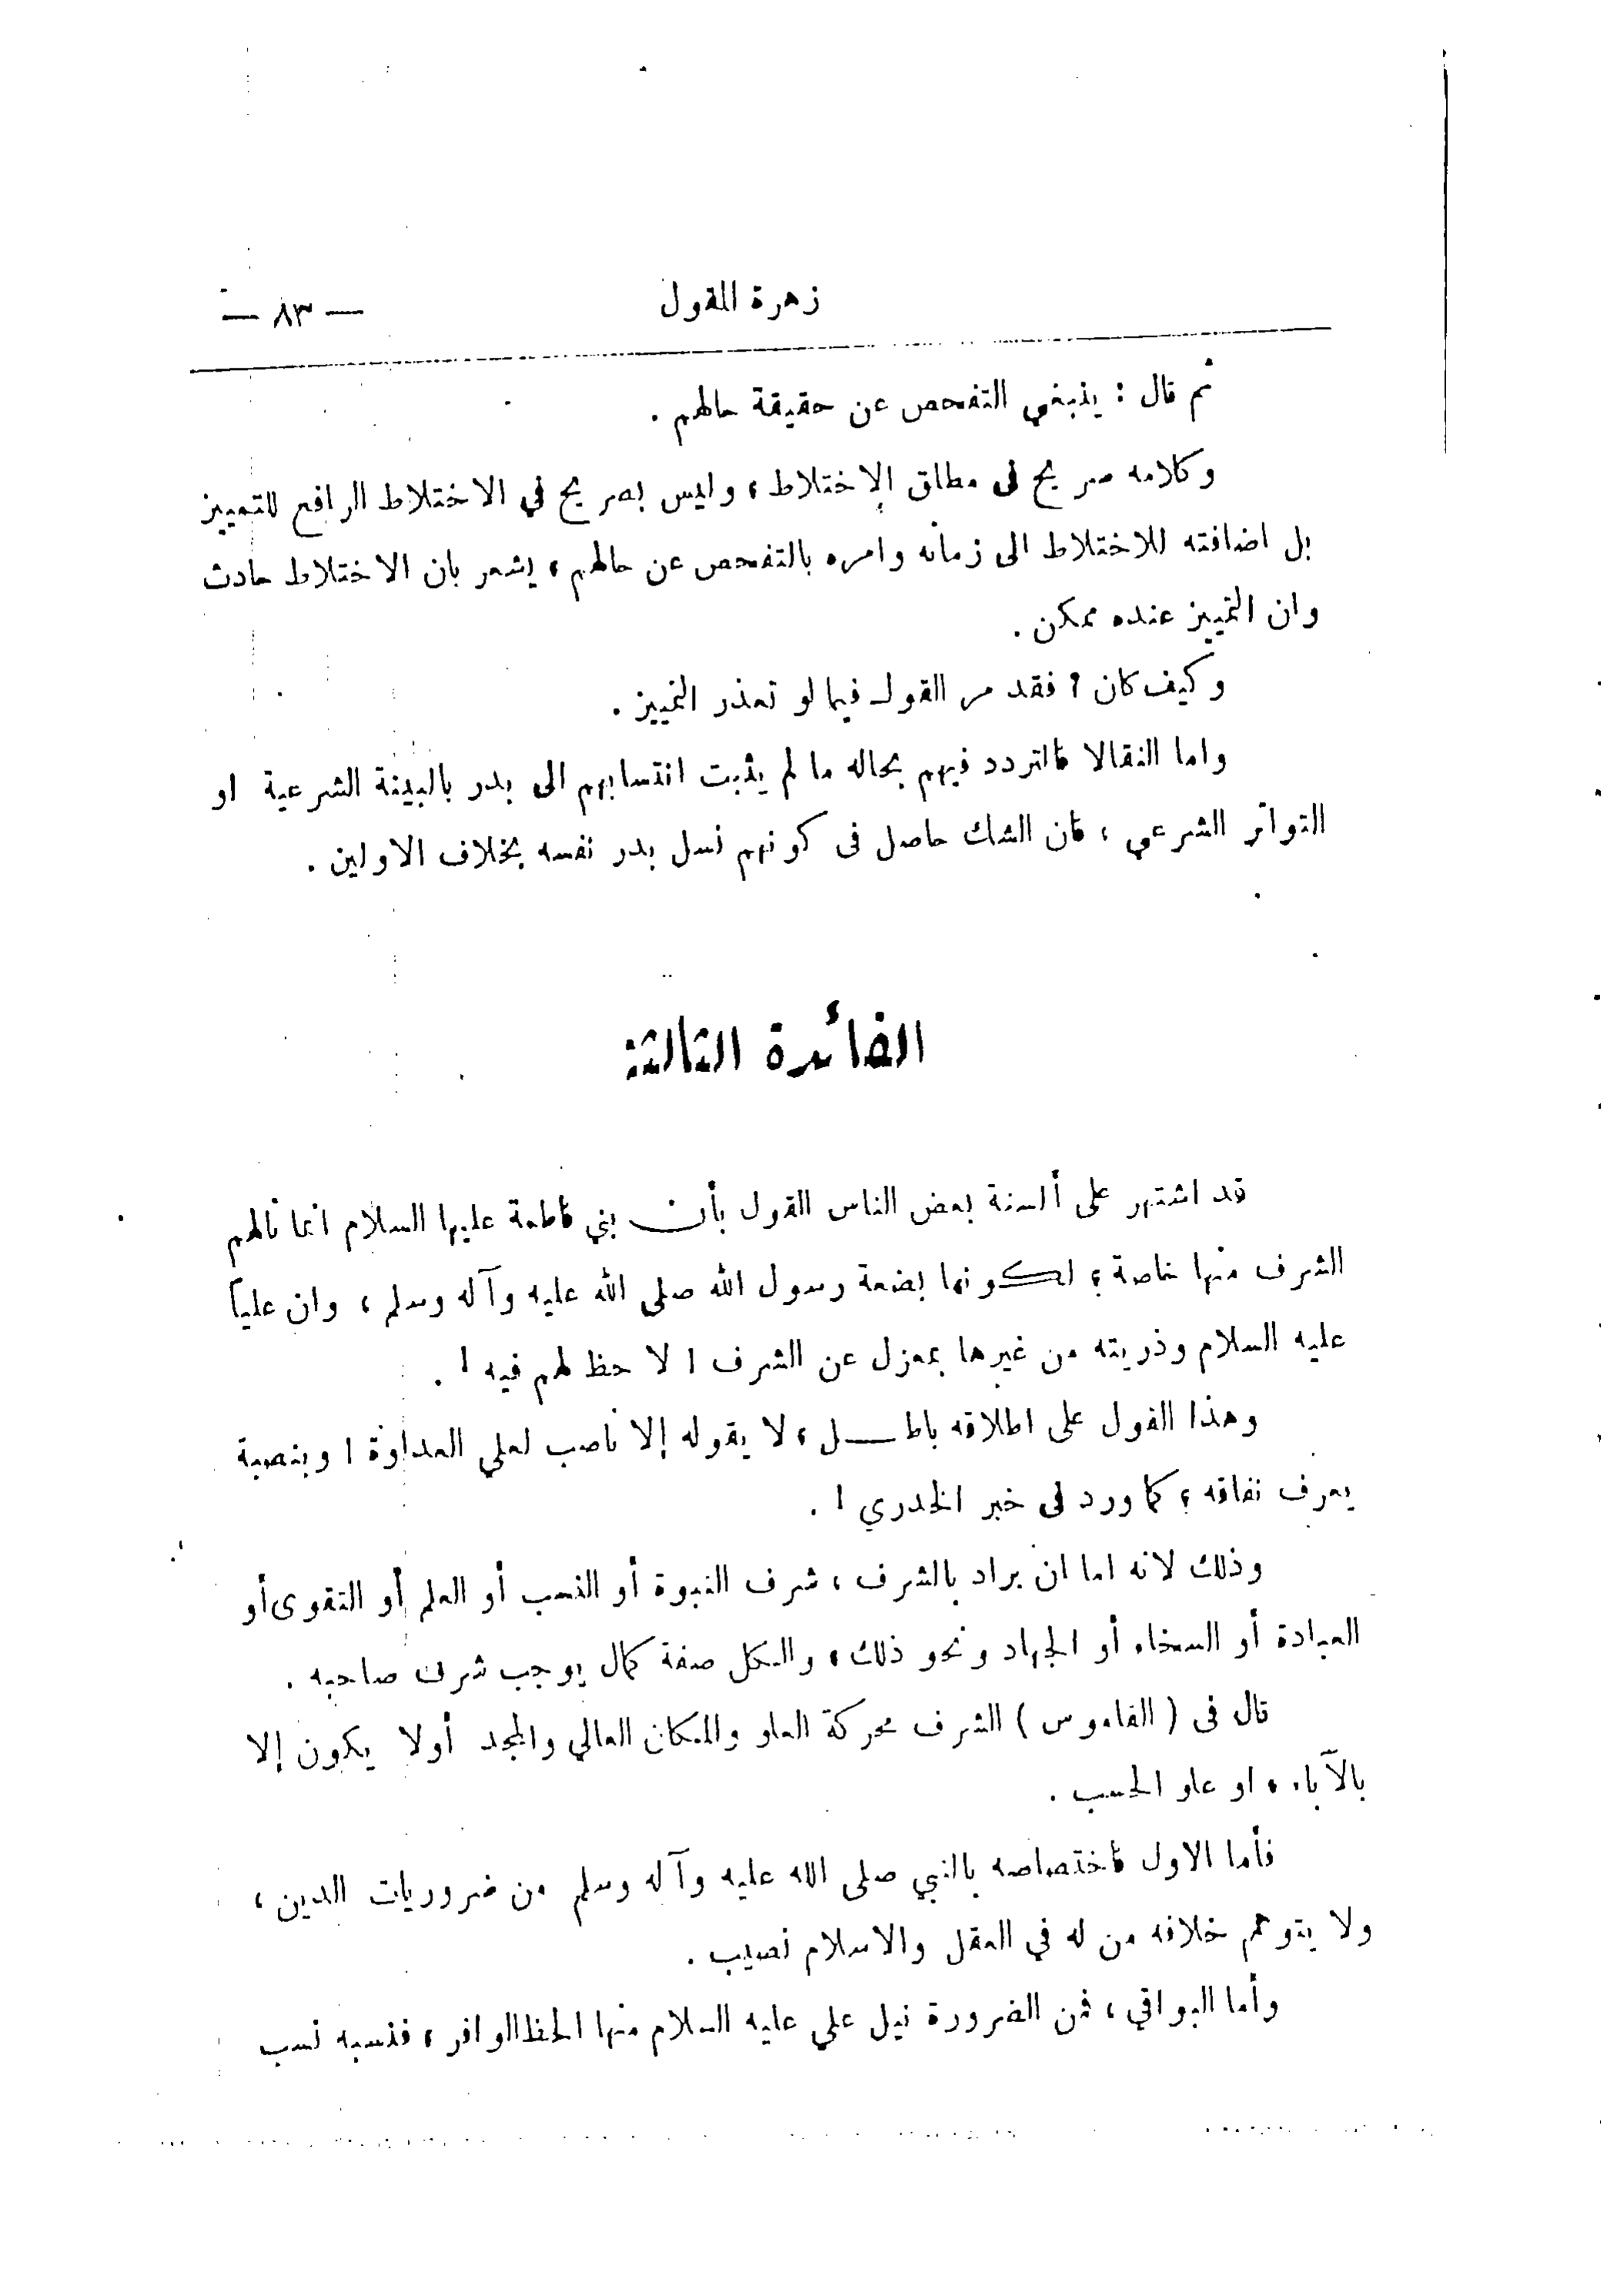 زهرة المقول
— ٨٣ —
ثم قال : ينبغي التفحص عن حقيقة حالهم .
وكلامه صريح فى مطلق الاختلاط ، وليس بصريح في الاختلاط الرافع للتمييز
بل اضافته للاختلاط الى زمانه وامره بالتفحص عن حالهم ، يشعر بان الاختلاط حادث
وان التمييز عنده ممكن .
وكيف كان ؟ فقد مر القول فيما لو تعذر التمييز .
واما النقالا فالتردد فيهم بحاله ما لم يثبت انتسابهم الى بدر بالبينة الشرعية او
التواتر الشرعي ، فان الشك حاصل فى كونهم نسل بدر نفسه بخلاف الاولين .
الفائدة الثالثة
قد اشتهر على ألسنة بعض الناس القول بأن بني فاطمة عليها السلام انما نالهم
الشرف منها خاصة ؛ لكونها بضعة رسول الله صلى الله عليه وآله وسلم ، وان علياً
عليه السلام وذريته من غيرها بمعزل عن الشرف ! لا حظ لهم فيه ! .
وهذا القول على اطلاقه باطل ، لا يقوله إلا ناصب لعلي العداوة ! وبنصبة
يعرف نفاقه ؛ كما ورد فى خبر الخدري ! .
وذلك لانه اما ان يراد بالشرف ، شرف النبوة أو النسب أو العلم أو التقوى أو
العبادة أو السخاء أو الجهاد ونحو ذلك ، والكل صفة كمال يوجب شرف صاحبه .
قال فى ( القاموس ) الشرف محركة العلو والمكان العالي والمجد أولا يكون إلا
بالآباء ، او علو الحسب .
فأما الاول فاختصاصه بالنبي صلى الله عليه وآله وسلم من ضروريات الدين ،
ولا يتوهم خلافه من له في العقل والاسلام نصيب .
وأما البواقي ، فمن الضرورة نيل علي عليه السلام منها الحظ الوافر ، فنسبه نسب